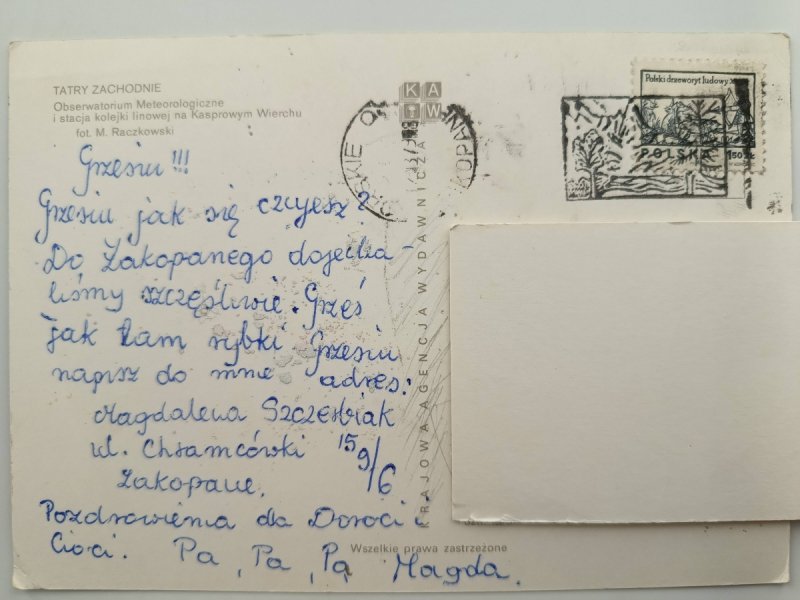 TATRY ZACHODNIE
Obserwatorium Meteorologiczne
i stacja kolejki linowej na Kasprowym Wierchu
fot. M. Raczkowski
Grzesiu !!!
Grzesiu jak się czujesz?
Do Zakopanego dojecha-
liśmy szczęśliwie. Grześ
jak tam rybki Grzesiu
napisz do mnie adres:
Magdalena Szczerbiak
ul. Chramcówki 15g/6
Zakopane.
Pozdrowienia dla Doroci i
Cioci. Pa, Pa, Pa Magda.
Wszelkie prawa zastrzeżone
KRAJOWA AGENCJA WYDAWNICZA
KAW
Polski drzeworyt ludowy
POLSKA
1,50 ZŁ